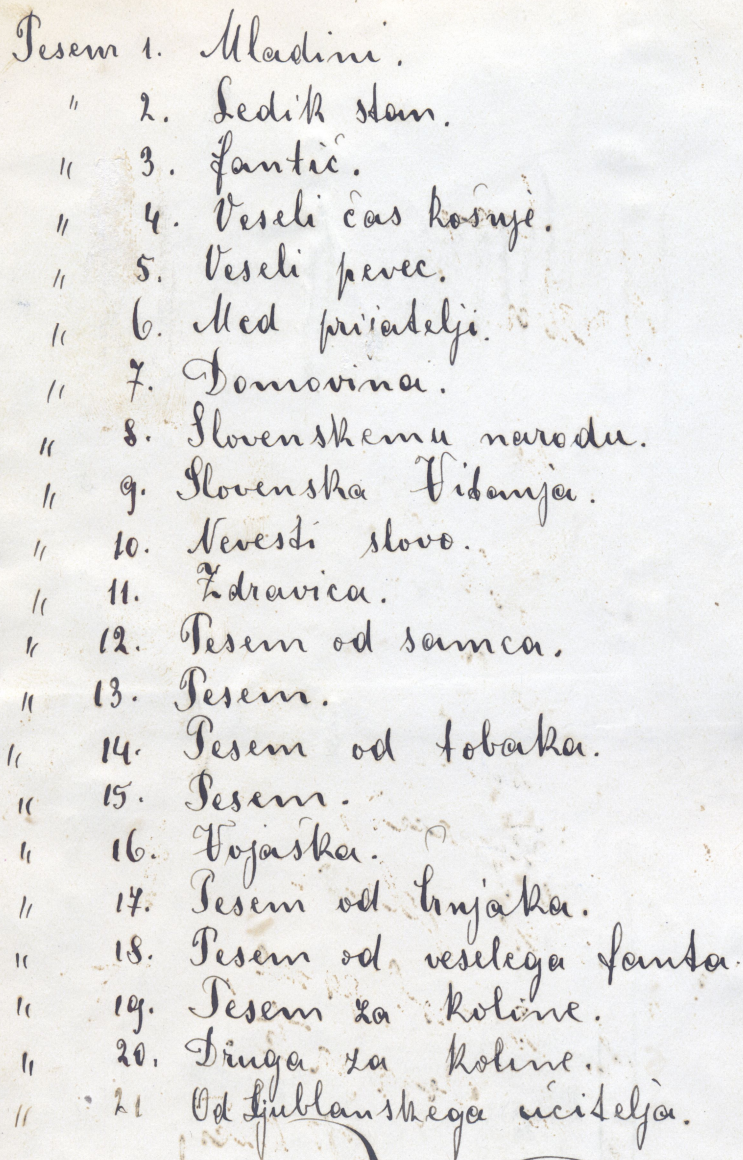 Pesem 1. Mladini.
" 2. Ledik stan.
" 3. fantič.
" 4. Veseli čas košnje.
" 5. Veseli pevec.
" 6. Med prijatelji.
" 7. Domovina.
" 8. Slovenskemu narodu.
" 9. Slovenska
" 10. Nevesti slovo.
" 11. Zdravica.
" 12. Pesem od samca.
" 13. Pesem.
" 14. Pesem od tobaka.
" 15. Pesem.
" 16. Vojaška.
" 17. Pesem od
" 18. Pesem od veselega fanta.
" 19. Pesem za koline.
" 20. Druga za koline.
" 21 Od Ljublanskega učitelja.